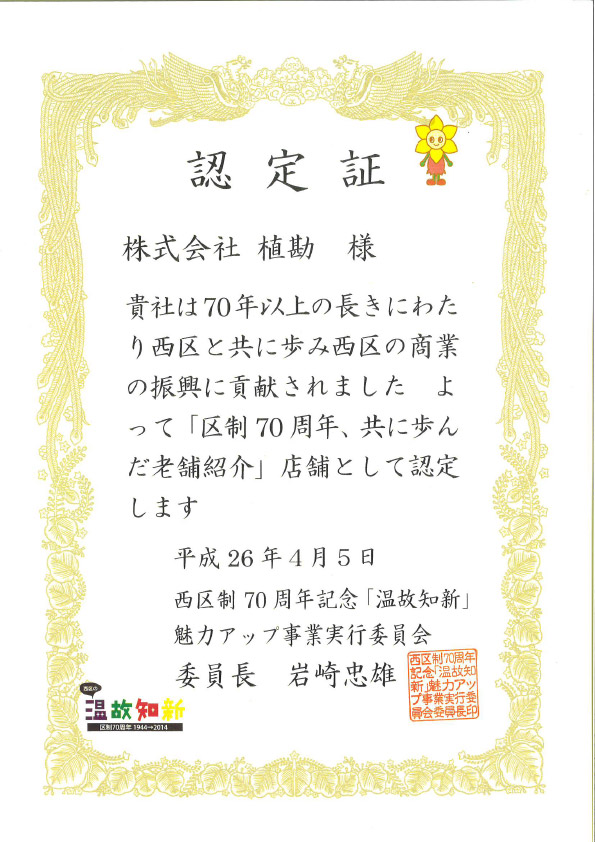 認定証
株式会社 植勘 様
貴社は70年以上の長きにわた
り西区と共に歩み西区の商業
の振興に貢献されました よ
って「区制70周年、共に歩ん
だ老舗紹介」店舗として認定
します
平成26年4月5日
西区制70周年記念「温故知新」
魅力アップ事業実行委員会
委員長 岩崎忠雄
西区制70周年
記念「温故知
新」魅力アッ
プ事業実行委
員会委員長印
西区の
温故知新
区制70周年 1944→2014